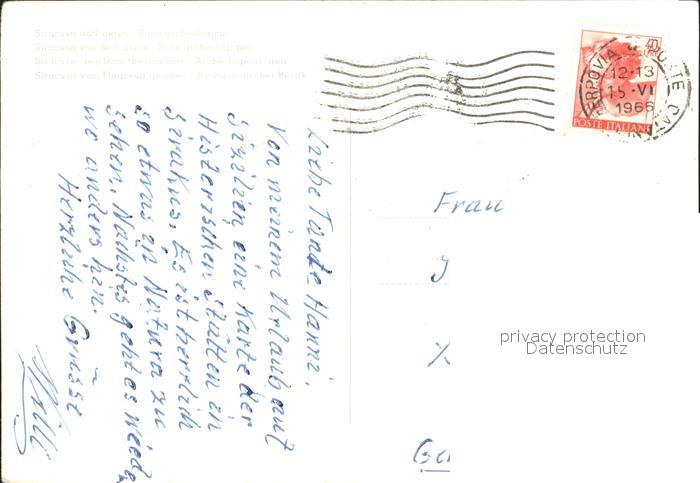 Siracusa dall'aereo - Zona archeologica
Siracusa vue de l'avion - Zone archéologique
Siracusa seen from the aeroplane - Archeological area
Siracusa vom Flugzeug Archäologischer Bezirk
Liebe Tante Hanni,
Von meinem Urlaub auf
Sizilien eine Karte der
Historischen Stätten in
Sirakus. Es ist herrlich
so etwas in Natura zu
sehen. Nächstes geht es wieder
wo anders hin.
Herzliche Grüsse
Willi
FERROVIA
12-13
15-VI
1966
POSTE ITALIANE
40
Frau
privacy protection
Datenschutz